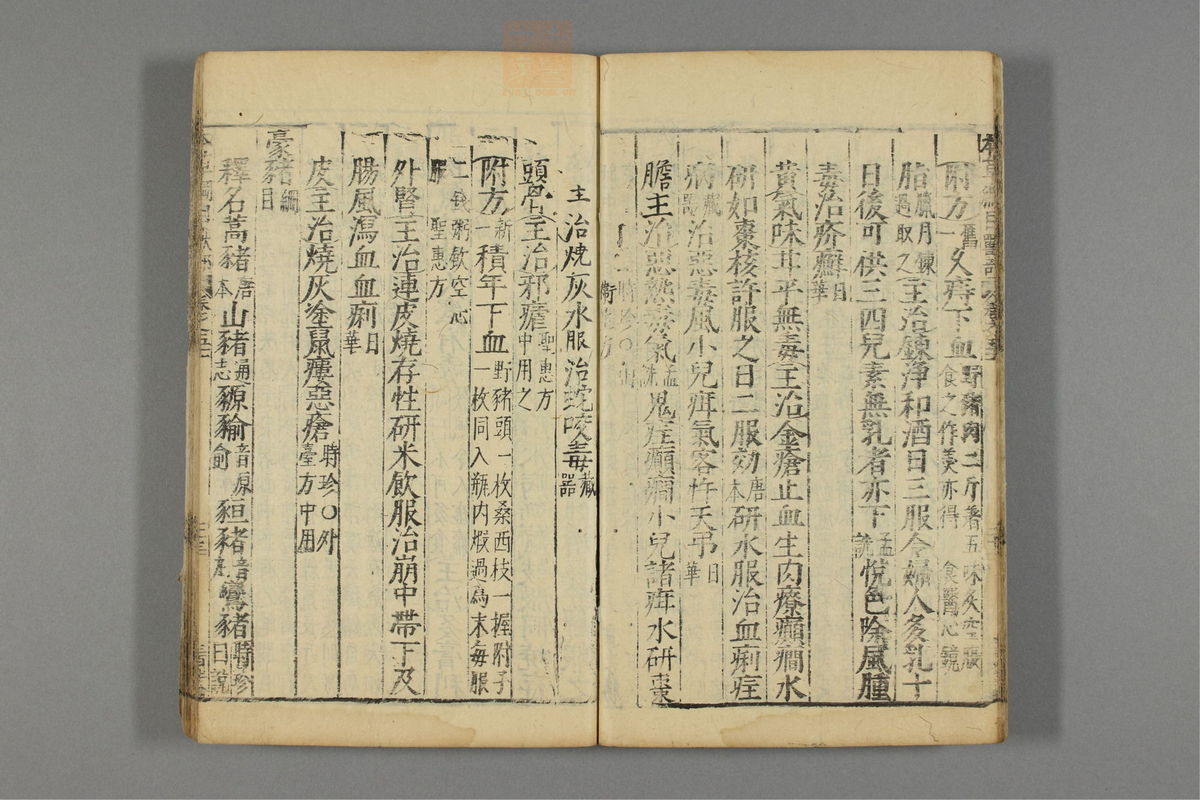 附方舊一久痔下血野豬肉二斤著五味炙空腹食之作羹亦得食醫心鏡
脂臘月鍊過取之主治鍊淨和酒日三服令婦人多乳十
日後可供三四兒素無乳者亦下孟詵悅色除風腫
毒治疥癬日華
黃氣味甘平無毒主治金瘡止血生肉療癲癇水
研如棗核許服之日二服効唐本研水服治血痢疰
病藏器治惡毒風小兒疳氣客忤天弔日華
膽主治惡熱毒氣孟詵鬼疰癲癇小兒諸疳水研棗
時珍〇
衛方
主治燒灰水服治蛇咬毒藏器
頭骨主治邪瘧聖惠方中用之
附方新一積年下血野豬頭一枚桑西枝一握附子一枚同入瓶內煅過為末每服
二錢粥飲空心服聖惠方
外腎主治連皮燒存性研米飲服治崩中帶下及
腸風瀉血血痢日華
皮主治燒灰塗鼠瘻惡瘡時珍〇外臺方中用
豪豬綱目
釋名蒿豬唐本山豬通志豲貐音原俞貆豬音丸鸞豬時珍曰說